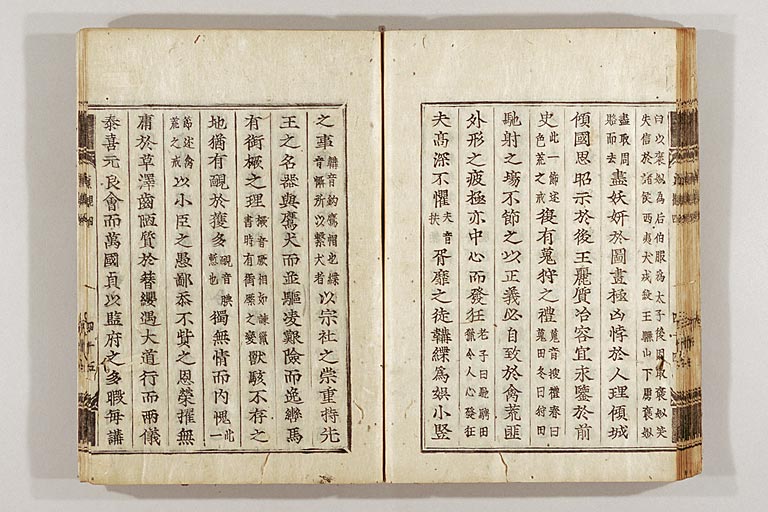 曰以褒姒為后伯服為太子後因取褒姒笑
失信於諸侯西夷犬戎殺王驪山下虜褒姒
盡取周賂而去盡妖姸於圖畫極凶悖於人理傾城
傾國思昭示於後王麗質冶容宜永鑒於前
史此一節述色荒之戒復有蒐狩之禮蒐音搜禮春曰蒐田冬曰狩田
馳射之場不節之以正義必自致於禽荒匪
外形之疲極亦中心而發狂老子曰馳騁田獵令人心發狂
夫高深不懼夫音扶胥靡之徒韝緤為娛小豎
之事韝音約鷹帽也緤音媟所以繫犬者以宗社之崇重持先
王之名器與鷹犬而並驅凌艱險而逸轡馬
有銜橛之理橛音厥相如諫獵書時有銜橛之變獸駭不存之
地猶有靦於獲多靦音腆慙也獨無情而內愧此一
節述禽荒之戒以小臣之愚鄙忝不貲之恩榮擢無
庸於草澤齒陋質於簪纓遇大道行而兩儀
泰喜元良會而萬國貞以監府之多暇每講